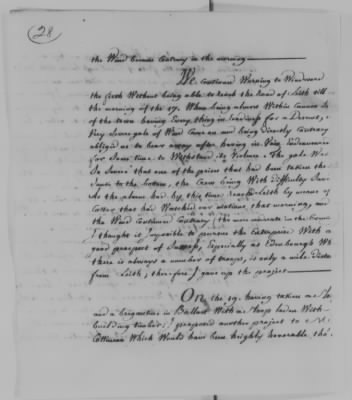 28
the Wind became Contrary in the morning
We Continued Working to Windward
the Firth Without being able to reach the Road of Leith till
the morning of the 17. When being almost Within Cannon
of the town having Every thing in readiness for a
Very Severe gale of Wind Came on and being directly Contrary
obliged us to bear away after having in Vain Endeavoured
for Some time to Withstand its Violence. The gale Was
So Severe that one of the prizes that had been taken
Sunk to the bottom, the Crew being With difficulty
As the alarm had by this time reached Leith by means of
Cutter that had Watched our motions that morning, and
the Wind Continued Contrary
I thought it Impossible to pursue the Enterprise With a
good prospect of Success, Especially as Edinburgh Wh
there is always a number of troops, is only a mile
from Leith, therefore I gave up the project
On the 19. having taken a
and a brigantine in Ballast With a Sloop laden With
building timber; I proposed another project to
Cottineau Which Would have been highly honorable tho'